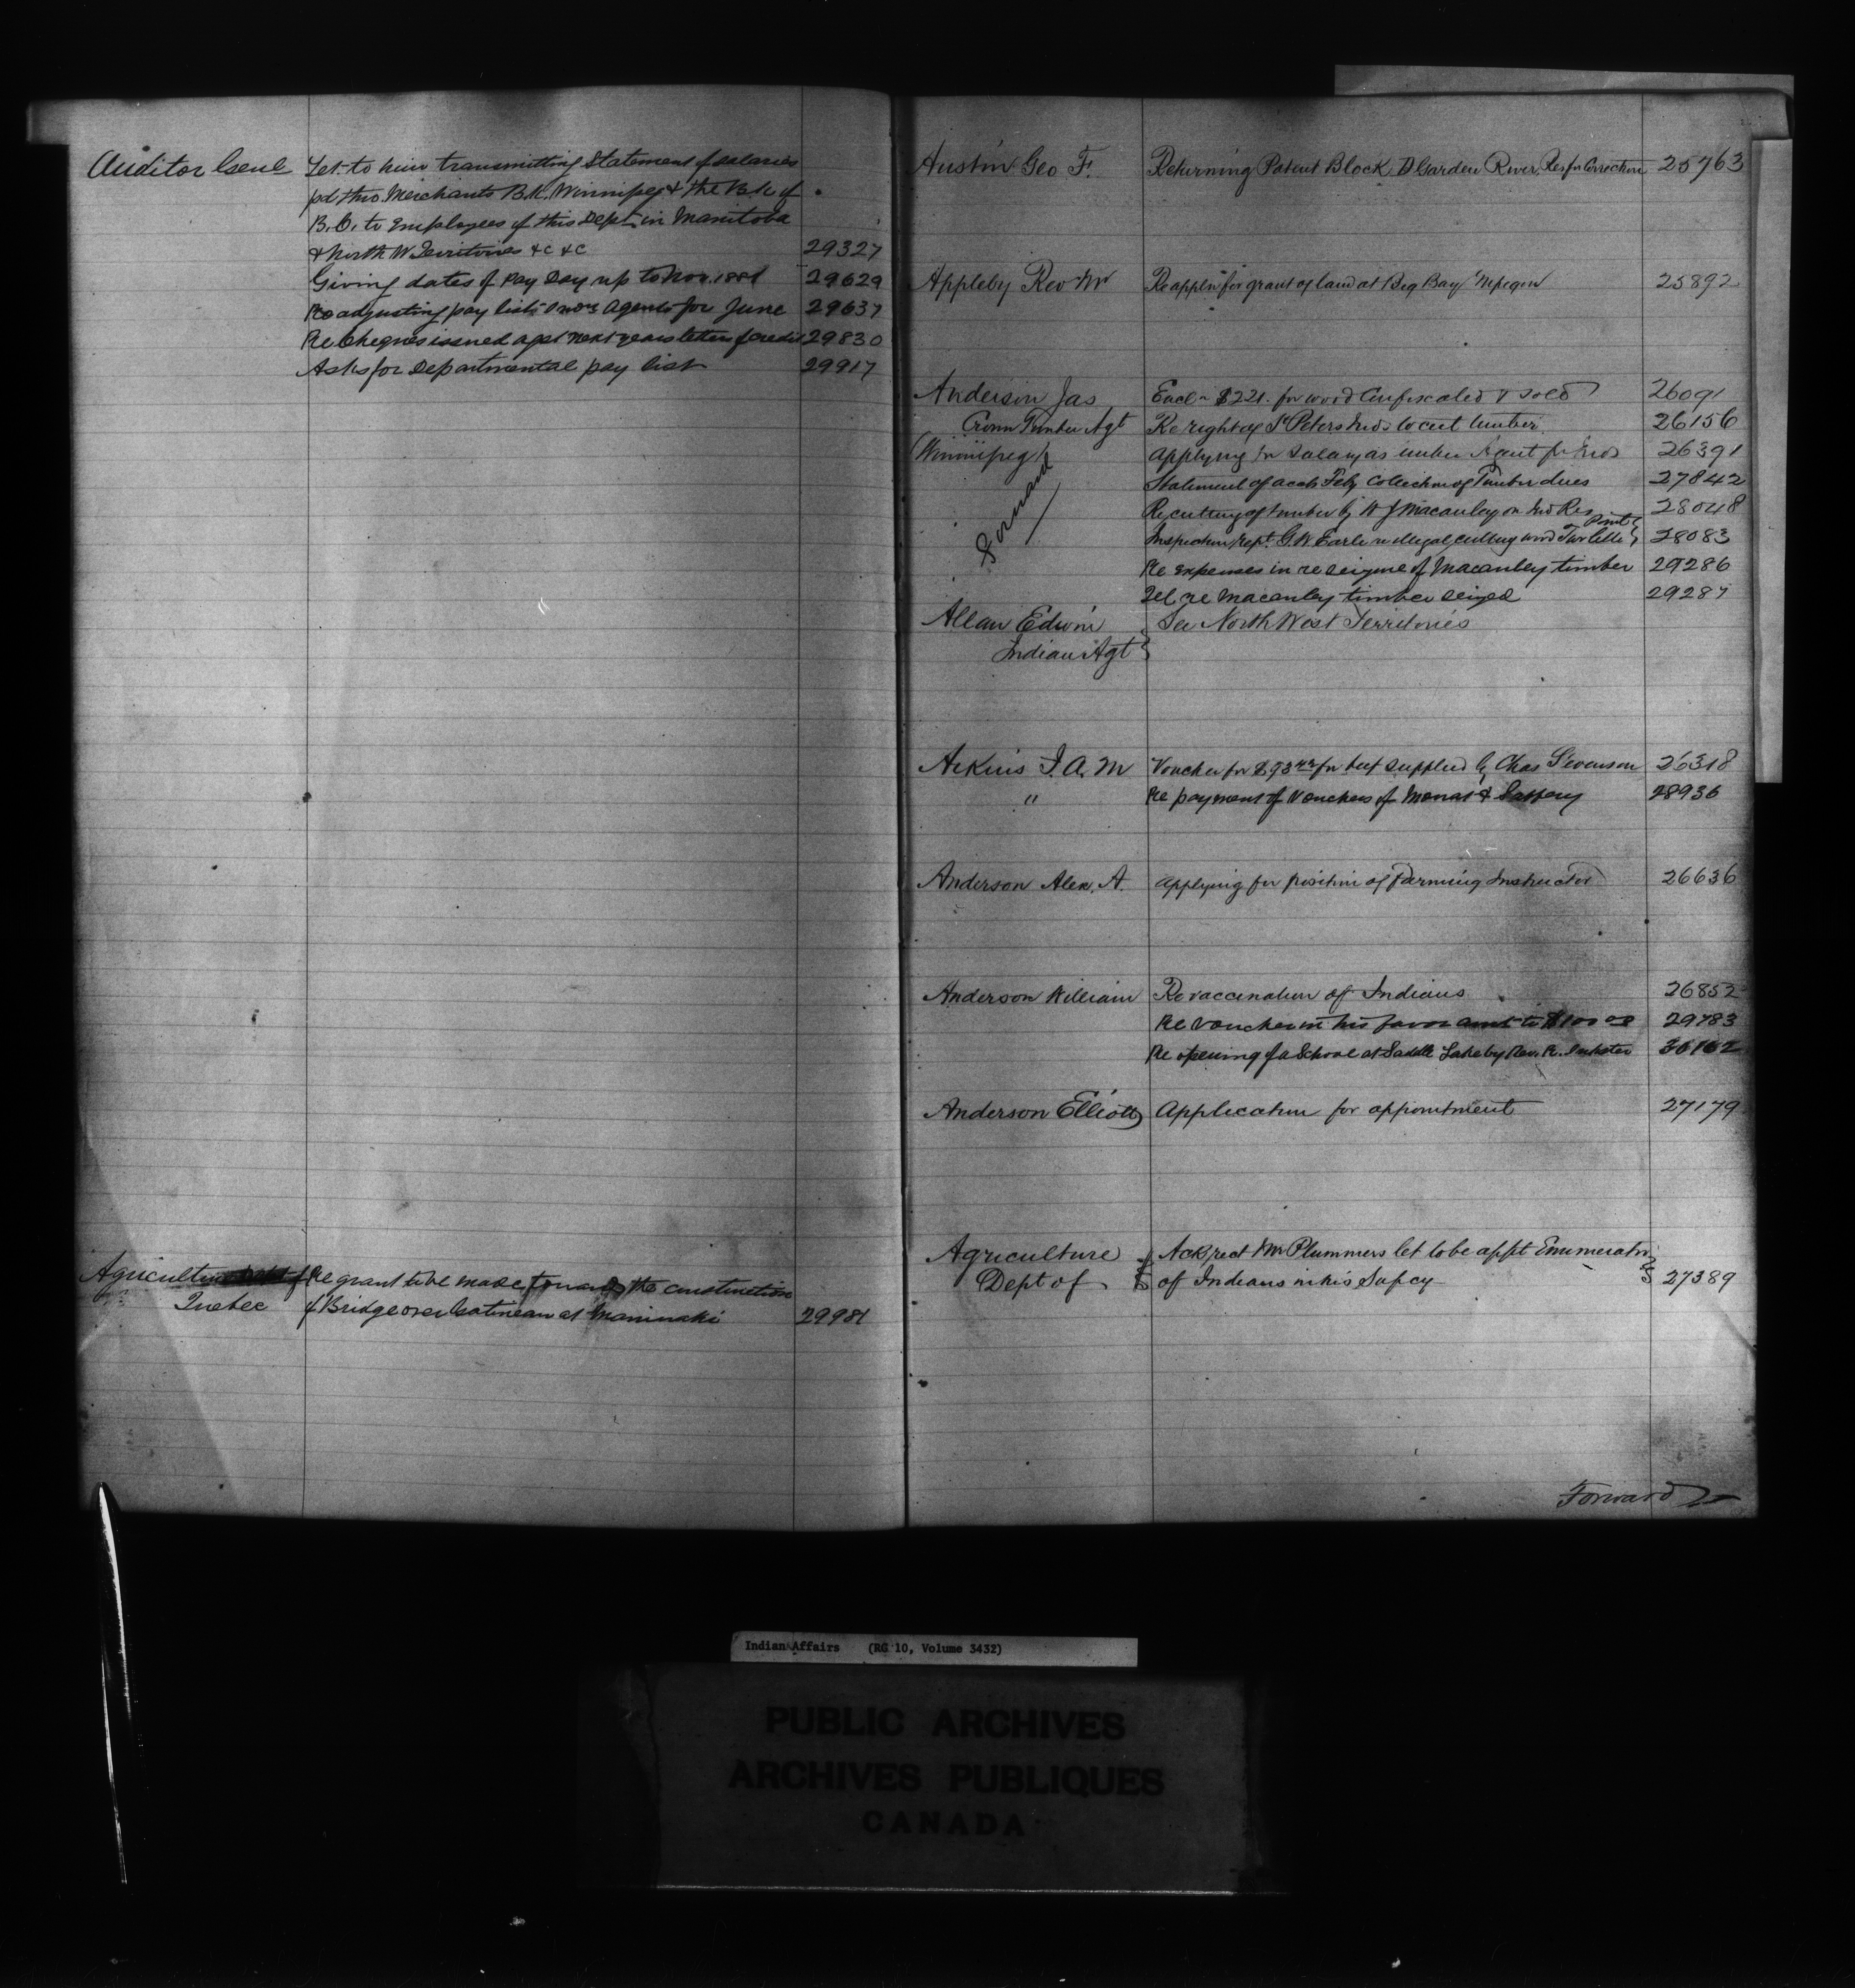 Auditor Genl Let. to him transmitting Statement of salaries
pd thro Merchants B.k. Winnipeg & the B.k. of
B.C. to Employees of this Dept in Manitoba
& North W Territories &c &c 29327
Giving dates of Pay Day up to Nov. 1881 29629
Re adjusting pay list Agents for June 29637
Re Cheques issued agst next years letters of credit 29830
Asks for Departmental pay list 29917
Agriculture Dept of Re grant to be made towards the construction
Quebec of Bridge over Gatineau at Maniwaki 29981
Austin Geo F. Returning Patent Block D Garden River Res for Correction 25763
Appleby Rev Mr Re appln for grant of land at Big Bay 25892
Anderson Jas Encl $221. for wood Confiscated & sold 26091
Crown Timber Agt Re right of St Peters Inds to cut timber 26156
(Winnipeg) Applying for Salary as timber Agent for Inds 26391
Statement of acct Feby Collection of Timber dues 27842
Re cutting of timber by W J Macauley on Ind Res 28048
Inspection rept. G. W Earle re illegal cutting wood Turtle Point 28083
Re expenses in re seizure of Macauley timber 29286
Tel re Macauley timber seized 29287
Forward
Allan Edwin See North West Territories
Indian Agt
Arkins J. A. M Voucher for $ for beef supplied by Chas Stevenson 26318
" Re payment of Vouchers of & 28936
Anderson Alex. A. Applying for position of Farming Instructor 26636
Anderson William Re vaccination of Indians 26852
Re voucher in his favor amt to $100 00 29783
Re opening of a School at Saddle Lake by Rev. R. Inkster 30162
Anderson Elliott Application for appointment 27179
Agriculture Ack rect Mr Plummers let to be appt Enumerator
Dept of of Indians in his Supcy 27389
Forward
Indian Affairs (RG 10, Volume 3432)
PUBLIC ARCHIVES
ARCHIVES PUBLIQUES
CANADA